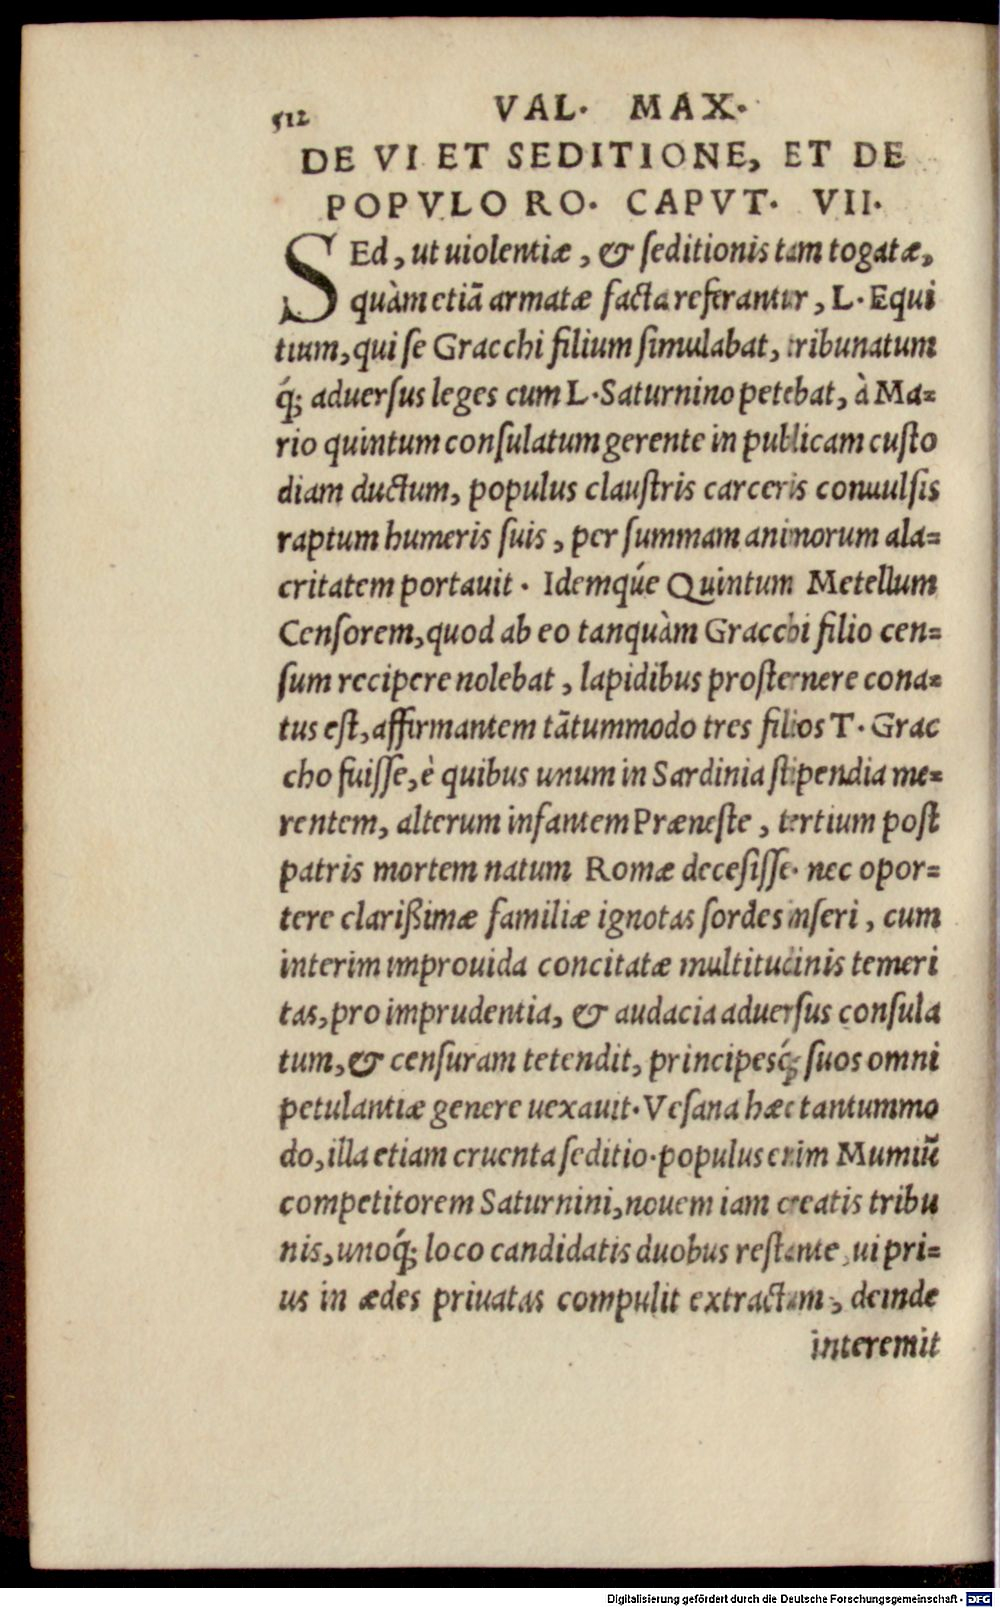 512 VAL. MAX.
DE VI ET SEDITIONE, ET DE
POPVLO RO. CAPVT. VII.
SEd, ut uiolentiæ, & ſeditionis tam togatæ,
quàm etiã armatæ facta referantur, L. Equi
tium, qui ſe Gracchi filium ſimulabat, tribunatum
q́; aduerſus leges cum L. Saturnino petebat, à Ma=
rio quintum conſulatum gerente in publicam cuſto
diam ductum, populus clauſtris carceris conuulſis
raptum humeris ſuis, per ſummam animorum ala=
critatem portauit. Idemq́ue Quintum Metellum
Cenſorem, quod ab eo tanquàm Gracchi filio cen=
ſum recipere nolebat, lapidibus proſternere cona=
tus eſt, affirmantem tãtummodo tres filios T. Grac
cho fuiſſe, è quibus unum in Sardinia ſtipendia me=
rentem, alterum infantem Præneſte, tertium poſt
patris mortem natum Romæ deceſiſſe. nec opor=
tere clarißimæ familiæ ignotas ſordes inſeri, cum
interim improuida concitatæ multitudinis temeri
tas, pro imprudentia, & audacia aduerſus conſula
tum, & cenſuram tetendit, principesq́; ſuos omni
petulantiæ genere uexauit. Veſana hæc tantummo
do, illa etiam cruenta ſeditio. populus enim Mumiũ
competitorem Saturnini, nouem iam creatis tribu
nis, unoq́; loco candidatis duobus reſtante, ui pri=
us in ædes priuatas compulit extractam, deinde
interemit
Digitalisierung gefördert durch die Deutsche Forschungsgemeinschaft - DFG